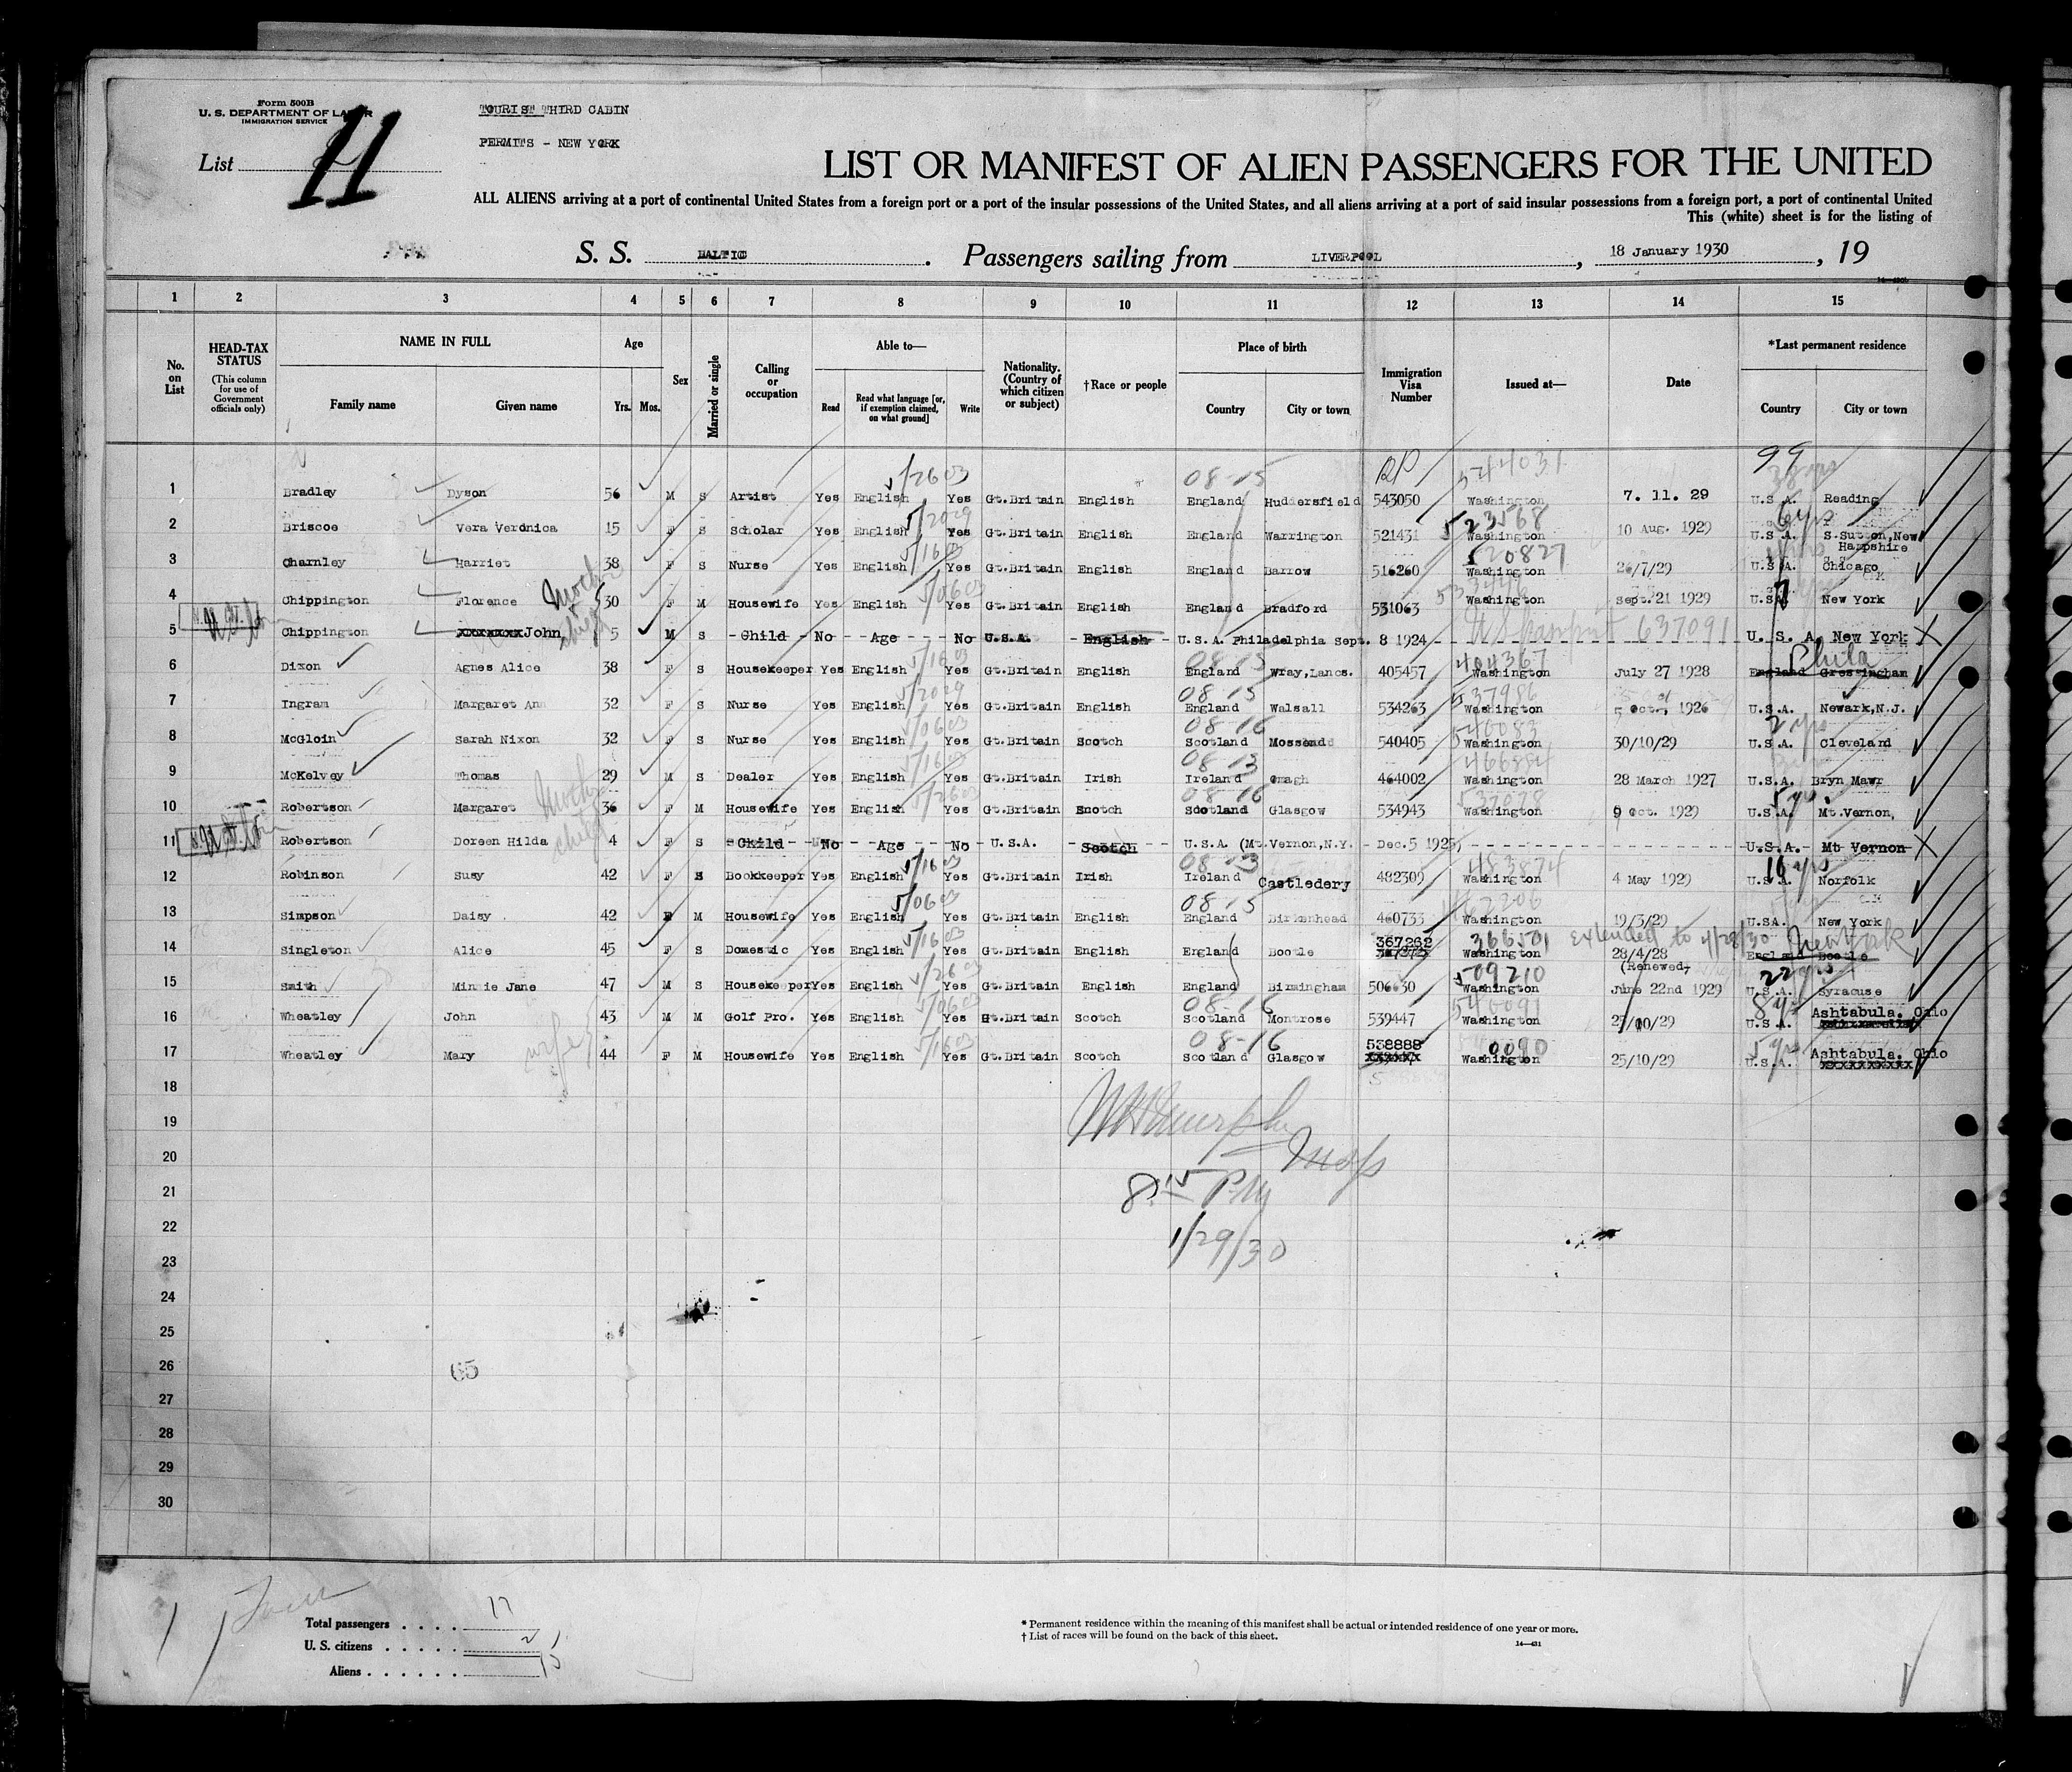 Form 500B
U. S. DEPARTMENT OF LABOR
IMMIGRATION SERVICE
List 11
TOURIST THIRD CABIN
PERMITS - NEW YORK
LIST OR MANIFEST OF ALIEN PASSENGERS FOR THE UNITED
ALL ALIENS arriving at a port of continental United States from a foreign port or a port of the insular possessions of the United States, and all aliens arriving at a port of said insular possessions from a foreign port, a port of continental United
This (white) sheet is for the listing of
S. S. BALTIC. Passengers sailing from LIVERPOOL, 18 January 1930, 19
1 2 3 4 5 6 7 8 9 10 11 12 13 14 15
No. on List
HEAD-TAX STATUS
(This column for use of Government officials only)
NAME IN FULL
Family name Given name
Age
Yrs. Mos.
Sex
Married or single
Calling or occupation
Able to—
Read Read what language [or, if exemption claimed, on what ground] Write
Nationality. (Country of which citizen or subject)
†Race or people
Place of birth
Country City or town
Immigration Visa Number
Issued at—
Date
*Last permanent residence
Country City or town
99
5/2603 08-15 RP 544031 38 yrs
1 Bradley Dyson 56 M S Artist Yes English Yes Gt.Britain English England Huddersfield 543050 Washington 7. 11. 29 U.S.A. Reading
5/2029 523568 6 yrs
2 Briscoe Vera Veronica 15 F S Scholar Yes English Yes Gt.Britain English England Warrington 521431 Washington 10 Aug. 1929 U.S.A. S.Sutton,New Hampshire
5/1603 520827
3 Charnley Harriet 38 F S Nurse Yes English Yes Gt.Britain English England Barrow 516260 Washington 26/7/29 U.S.A. Chicago
5/0603
4 Chippington Florence 30 F M Housewife Yes English Yes Gt.Britain English England Bradford 531063 Washington Sept. 21 1929 U.S.A. New York
5 Chippington xxxxxxx John 5 M S - Child - No - Age - No U.S.A. - English - U.S.A. Philadelphia Sept. 8 1924 - US Passport 637091 U. S. A. New York X
5/1603 08-15 404367 Phila
6 Dixon Agnes Alice 38 F S Housekeeper Yes English Yes Gt.Britain English England Wray,Lancs. 405457 Washington July 27 1928 England Gressingham
5/2029 08-15 537986
7 Ingram Margaret Ann 32 F S Nurse Yes English Yes Gt.Britain English England Walsall 534263 Washington 5 Oct., 1926 U.S.A. Newark,N.J.
5/0603 08-16 540083 2 yrs
8 McGloin Sarah Nixon 32 F S Nurse Yes English Yes Gt.Britain Scotch Scotland Mossend 540405 Washington 30/10/29 U.S.A. Cleveland
5/1603 08-13 466884
9 McKelvey Thomas 29 M S Dealer Yes English Yes Gt.Britain Irish Ireland Omagh 464002 Washington 28 March 1927 U.S.A. Bryn Mawr
5/2603 08-16 5 yrs
10 Robertson Margaret 36 F M Housewife Yes English Yes Gt.Britain Scotch Scotland Glasgow 534943 Washington 9 Oct. 1929 U.S.A. Mt.Vernon,
11 Robertson Doreen Hilda 4 F S - Child - No - Age - No - U.S.A. Scotch U.S.A. (Mt.Vernon,N.Y. - Dec.5 1925, U.S.A. Mt Vernon X
5/1603 08-13 483874 16 yrs
12 Robinson Susy 42 F S Bookkeeper Yes English Yes Gt.Britain Irish Ireland Castledery 482309 Washington 4 May 1929 U.S.A. Norfolk
5/0603 08-15
13 Simpson Daisy 42 F M Housewife Yes English Yes Gt.Britain English England Birkenhead 460733 Washington 19/3/29 U.SA. New York
5/1603 367262 366501 Extended to 4/28/30 New York
14 Singleton Alice 45 F S Domestic Yes English Yes Gt.Britain English England Bootle Washington 28/4/28 England Bootle
5/2603 509210 (Renewed- 22 yrs
15 Smith Minnie Jane 47 M S Housekeeper Yes English Yes Gt.Britain English England Birmingham 506630 Washington June 22nd 1929 U.S.A. Syracuse
5/0603 08-16 540091 8 yrs
16 Wheatley John 43 M M Golf Pro. Yes English Yes Gt.Britain Scotch Scotland Montrose 539447 Washington 25/10/29 U.S.A. Ashtabula. Ohio
wife 5/1603 08-16 538888 0090 5 yrs
17 Wheatley Mary 44 F M Housewife Yes English Yes Gt.Britain Scotch Scotland Glasgow xxxxxx Washington 25/10/29 U.S.A. Ashtabula. Ohio xxxxxxxxxxx
18
19
20
21
8:15 PM
22
1/29/30
23
24
25
26
65
27
28
29
30
Total passengers . . . . 17
U. S. citizens . . . . . 2
Aliens . . . . . . 15
* Permanent residence within the meaning of this manifest shall be actual or intended residence of one year or more.
† List of races will be found on the back of this sheet.
14—431